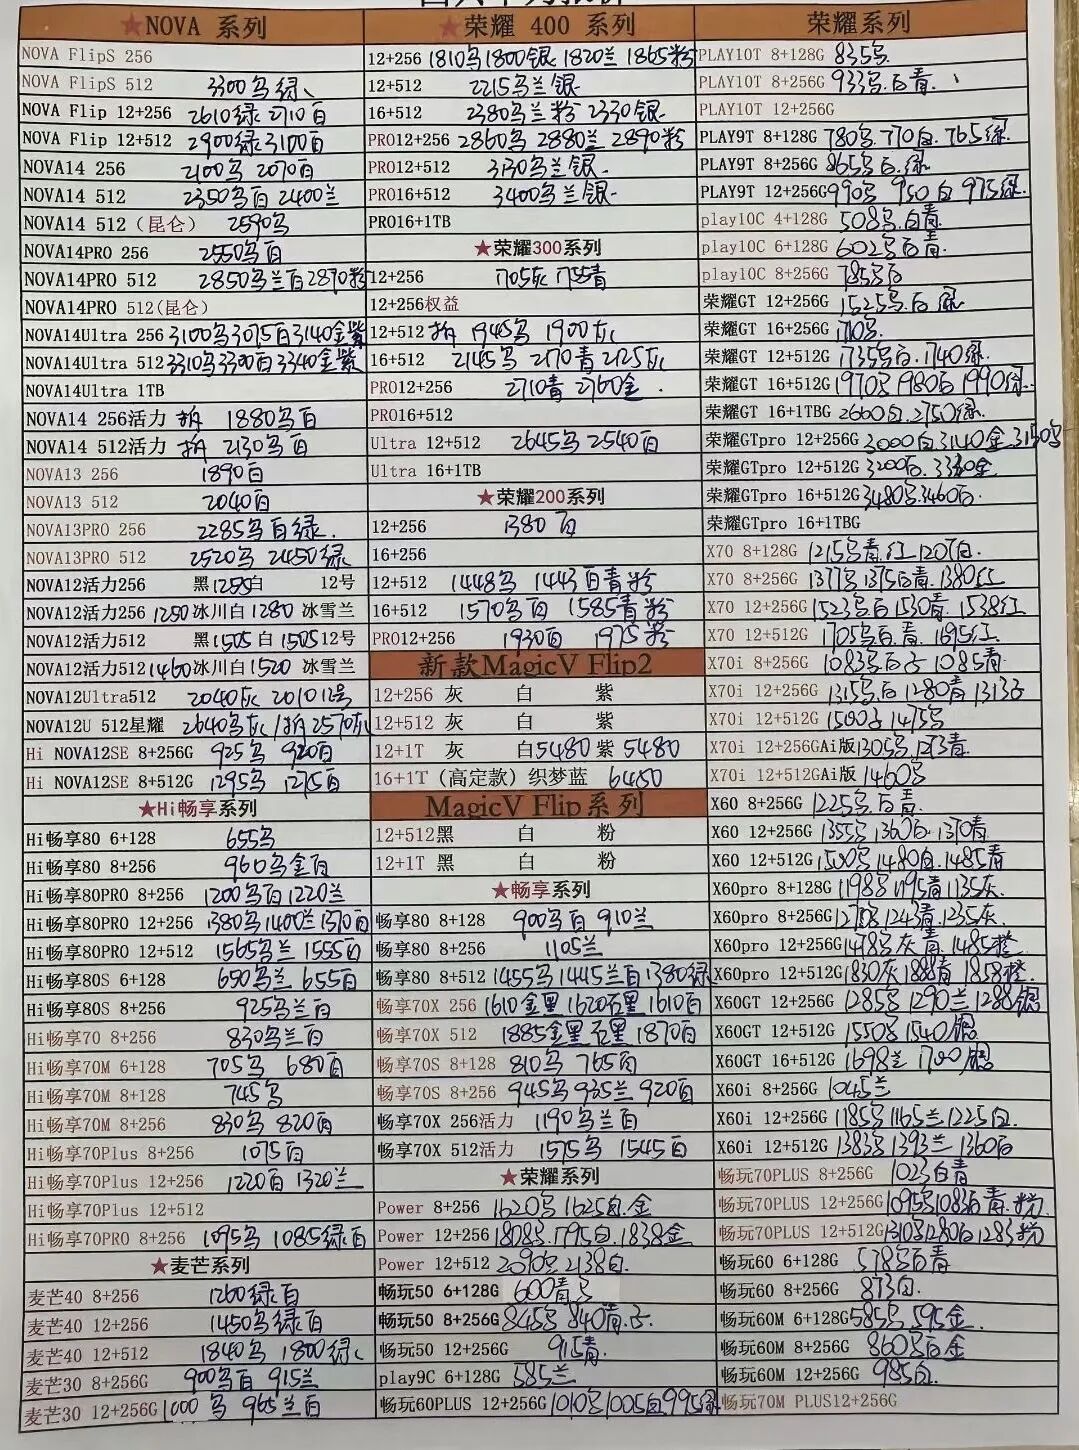 ★NOVA 系列
NOVA FlipS 256
NOVA FlipS 512 3300乌绿
NOVA Flip 12+256 2610绿 2710白
NOVA Flip 12+512 2900绿 3100白
NOVA14 256 2100乌 2070白
NOVA14 512 2350乌白 2400兰
NOVA14 512（昆仑） 2590乌
NOVA14PRO 256 2550乌白
NOVA14PRO 512 2850乌兰白 2870粉
NOVA14PRO 512(昆仑)
NOVA14Ultra 256 3100乌 3075白 3140金紫
NOVA14Ultra 512 3310乌 3300白 3340金紫
NOVA14Ultra 1TB
NOVA14 256活力 拆 1880乌白
NOVA14 512活力 拆 2130乌白
NOVA13 256 1890白
NOVA13 512 2040白
NOVA13PRO 256 2285乌白绿
NOVA13PRO 512 2520乌 2450绿
NOVA12活力256 黑1255白 12号
NOVA12活力256 1250冰川白 1280 冰雪兰
NOVA12活力512 黑1505 白 1505 12号
NOVA12活力512 1460冰川白 1520 冰雪兰
NOVA12Ultra512 2040灰 2010 12号
NOVA12U 512星耀 2640乌灰/拆2570灰
Hi NOVA12SE 8+256G 925乌 920白
Hi NOVA12SE 8+512G 1295乌 1275白
★Hi畅享系列
Hi畅享80 6+128 655乌
Hi畅享80 8+256 960乌金白
Hi畅享80PRO 8+256 1200乌白 1220兰
Hi畅享80PRO 12+256 1380乌 1400兰 1370白
Hi畅享80PRO 12+512 1565乌兰 1555白
Hi畅享80S 6+128 650乌兰 655白
Hi畅享80S 8+256 925乌兰白
Hi畅享70 8+256 830乌兰白
Hi畅享70M 6+128 705乌 680白
Hi畅享70M 8+128 745乌
Hi畅享70M 8+256 830乌 820白
Hi畅享70Plus 8+256 1075白
Hi畅享70Plus 12+256 1220白 1320兰
Hi畅享70Plus 12+512
Hi畅享70PRO 8+256 1095乌 1085绿白
★麦芒系列
麦芒40 8+256 1260绿白
麦芒40 12+256 1450乌绿白
麦芒40 12+512 1840乌 1800绿
麦芒30 8+256G 900乌白 915兰
麦芒30 12+256G 1000乌 965兰白
★荣耀 400 系列
12+256 1810乌 1800银 1820兰 1865粉
12+512 2215乌兰银
16+512 2380乌兰粉 2330银
PRO12+256 2860乌 2880兰 2890粉
PRO12+512 3130乌兰银
PRO16+512 3400乌兰银
PRO16+1TB
★荣耀300系列
12+256 1705灰 1755青
12+256权益
12+512 拆 1945乌 1900灰
16+512 2145乌 2170青 2125灰
PRO12+256 2710青 2760金
PRO16+512
Ultra 12+512 2645乌 2540白
Ultra 16+1TB
★荣耀200系列
12+256 1380白
16+256
12+512 1448乌 1443白青粉
16+512 1570乌白 1585青粉
PRO12+256 1930白 1975粉
新款MagicV Flip2
12+256 灰 白 紫
12+512 灰 白 紫
12+1T 灰 白5480 紫 5480
16+1T（高定款）织梦蓝 6480
MagicV Flip系列
12+512黑 白 粉
12+1T 黑 白 粉
★畅享系列
畅享80 8+128 900乌白 910兰
畅享80 8+256 1105兰
畅享80 8+512 1455乌 1445兰白 1380绿
畅享70X 256 1610金黑 1620石黑 1610白
畅享70X 512 1885金黑 石黑 1870白
畅享70S 8+128 810乌 765白
畅享70S 8+256 945乌 935兰 920白
畅享70X 256活力 1190乌兰白
畅享70X 512活力 1575乌 1545白
★荣耀系列
Power 8+256 1620乌 1625白.金
Power 12+256 1808乌.1795白.1838金
Power 12+512 2090乌 2138白.
畅玩50 6+128G 600青乌
畅玩50 8+256G 845乌 840青.子.
畅玩50 12+256G 915青.
play9C 6+128G 585兰
畅玩60PLUS 12+256G 1010乌 1005白 995绿
荣耀系列
PLAY10T 8+128G 835乌.
PLAY10T 8+256G 933乌.白青.
PLAY10T 12+256G
PLAY9T 8+128G 780乌. 770白. 765绿.
PLAY9T 8+256G 865乌白.绿.
PLAY9T 12+256G 990乌 950白 975绿
play10C 4+128G 508乌.白青
play10C 6+128G 602乌白青.
play10C 8+256G 785乌白
荣耀GT 12+256G 1525乌.白.绿
荣耀GT 16+256G 1710乌.
荣耀GT 12+512G 1735乌白.1740绿.
荣耀GT 16+512G 1970乌 1980白 1990绿.
荣耀GT 16+1TBG 2660白.2750绿.
荣耀GTpro 12+256G 3000白.3140金.3150乌
荣耀GTpro 12+512G 3200白.3330金
荣耀GTpro 16+512G 3480乌.3460白.
荣耀GTpro 16+1TBG
X70 8+128G 1215乌青.红 1207白.
X70 8+256G 1377乌 1375白青.1380红
X70 12+256G 1523乌白 1530青. 1538红
X70 12+512G 1705乌白.青. 1695红.
X70i 8+256G 1083乌白子 1085青
X70i 12+256G 1315乌.白 1280青 1313子
X70i 12+512G 1500子 1475乌
X70i 12+256GAi版 1305乌.1273青.
X70i 12+512GAi版 1460乌
X60 8+256G 1225乌.白青.
X60 12+256G 1355乌 1360白.1370青
X60 12+512G 1500乌 1480白.1485青
X60pro 8+128G 1198乌 1195青 1135灰.
X60pro 8+256G 1270乌 1243青.1235灰.
X60pro 12+256G 1478乌灰 青.1485橙.
X60pro 12+512G 1830灰 1888青 1858橙.
X60GT 12+256G 1285乌 1290兰 1288银
X60GT 12+512G 1550乌 1540银.
X60GT 16+512G 1698兰 1700银
X60i 8+256G 1045兰
X60i 12+256G 1185乌 1165兰 1225白.
X60i 12+512G 1383乌 1393兰 1360白
畅玩70PLUS 8+256G 1023白青
畅玩70PLUS 12+256G 1095乌 1083白青.粉
畅玩70PLUS 12+512G 1310乌 1280白 1283粉
畅玩60 6+128G 578乌白青
畅玩60 8+256G 873白.
畅玩60M 6+128G 585乌. 595金.
畅玩60M 8+256G 860乌白金
畅玩60M 12+256G 985白.
畅玩70M PLUS12+256G